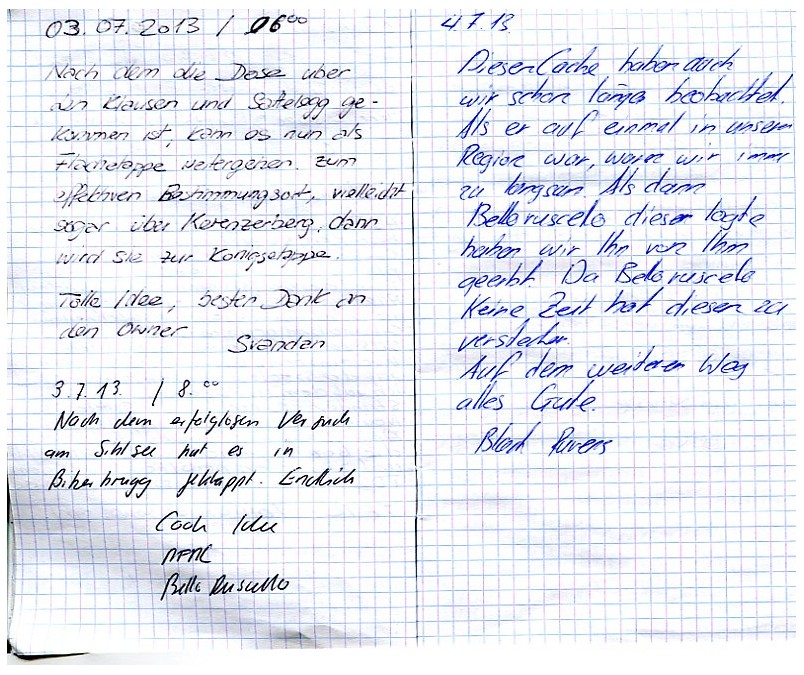 03.07.2013 / 06⁰⁰
Nach dem die Dose über
den Klausen und Sattelegg ge-
kommen ist, kann es nun als
Flachetappe weitergehen. zum
effektiven Bestimmungsort, vielleicht
sogar über Kerenzerberg, dann
wird sie zur Königsetappe.
Tolle Idee, besten Dank an
den Owner
Svandan
3.7.13. / 8.⁰⁰
Nach dem erfolglosen Versuch
am Sihlsee hat es in
Biberbrugg geklappt. Endlich
Coole Idee
Bella Ruscello
4.7.13.
Diesen Cache haben auch
wir schon länger beobachtet.
Als er auf einmal in unserer
Region war, waren wir immer
zu langsam. Als dann
Belloruscello diesen logte
haben wir Ihn von Ihm
geerbt. Da Belloruscelo
Keine Zeit hat diesen zu
verstecken.
Auf dem weiteren Weg
alles Gute.